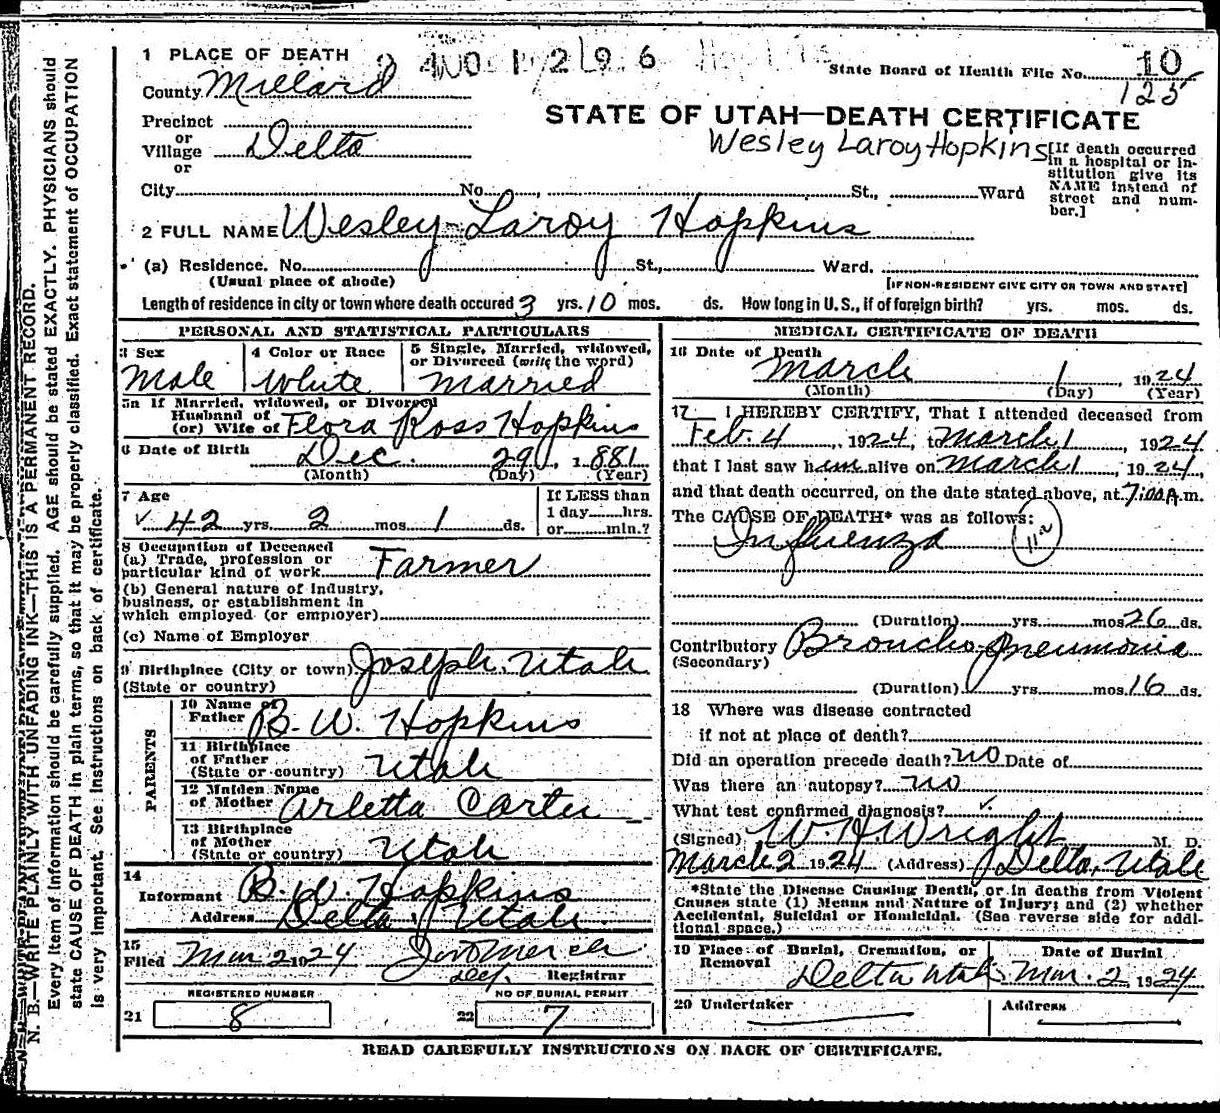 1 PLACE OF DEATH
State Board of Health File No. 10
125
County Millard
STATE OF UTAH—DEATH CERTIFICATE
Precinct
or
Village Delta
or
Wesley Laroy Hopkins
[If death occurred in a hospital or institution give its NAME instead of street and number.]
City No. , St., Ward
2 FULL NAME Wesley Laroy Hopkins
(a) Residence. No. St., Ward.
(Usual place of abode)
[IF NON-RESIDENT GIVE CITY OR TOWN AND STATE]
Length of residence in city or town where death occured 3 yrs. 10 mos. ds. How long in U. S., if of foreign birth? yrs. mos. ds.
PERSONAL AND STATISTICAL PARTICULARS
3 Sex
Male
4 Color or Race
White
5 Single, Married, widowed,
or Divorced (write the word)
Married
5a If Married, widowed, or Divorced
Husband of
(or) Wife of Flora Ross Hopkins
6 Date of Birth Dec. 29, 1881
(Month) (Day) (Year)
7 Age
42 yrs. 2 mos. 1 ds.
If LESS than
1 day hrs.
or min.?
8 Occupation of Deceased
(a) Trade, profession or
particular kind of work Farmer
(b) General nature of industry,
business, or establishment in
which employed (or employer)
(c) Name of Employer
9 Birthplace (City or town) Joseph, Utah
(State or country)
PARENTS
10 Name of
Father B. W. Hopkins
11 Birthplace
of Father
(State or country) Utah
12 Maiden Name
of Mother Arletta Carter
13 Birthplace
of Mother
(State or country) Utah
14
Informant B. W. Hopkins
Address Delta, Utah
15
Filed Mar 2 1924
Dep. Registrar
REGISTERED NUMBER
21 8
NO OF BURIAL PERMIT
22 7
MEDICAL CERTIFICATE OF DEATH
16 Date of Death
March 1, 1924
(Month) (Day) (Year)
17 I HEREBY CERTIFY, That I attended deceased from
Feb. 4, 1924, to March 1, 1924
that I last saw him alive on March 1, 1924,
and that death occurred, on the date stated above, at 7:00 A.m.
The CAUSE OF DEATH* was as follows:
Influenza
(Duration) yrs. mos. 26 ds.
Contributory Broncho-Pneumonia
(Secondary)
(Duration) yrs. mos. 16 ds.
18 Where was disease contracted
if not at place of death?
Did an operation precede death? no Date of
Was there an autopsy? no
What test confirmed diagnosis?
(Signed) W. H. Wright M. D.
March 2 1924 (Address) Delta, Utah
*State the Disease Causing Death, or in deaths from Violent
Causes state (1) Means and Nature of Injury; and (2) whether
Accidental, Suicidal or Homicidal. (See reverse side for addi-
tional space.)
19 Place of Burial, Cremation, or
Removal Delta Utah
Date of Burial
Mar. 2 1924
20 Undertaker
Address
READ CAREFULLY INSTRUCTIONS ON BACK OF CERTIFICATE.
N. B.—WRITE PLAINLY WITH UNFADING INK—THIS IS A PERMANENT RECORD.
Every item of information should be carefully supplied. AGE should be stated EXACTLY. PHYSICIANS should
state CAUSE OF DEATH in plain terms, so that it may be properly classified. Exact statement of OCCUPATION
is very important. See instructions on back of certificate.